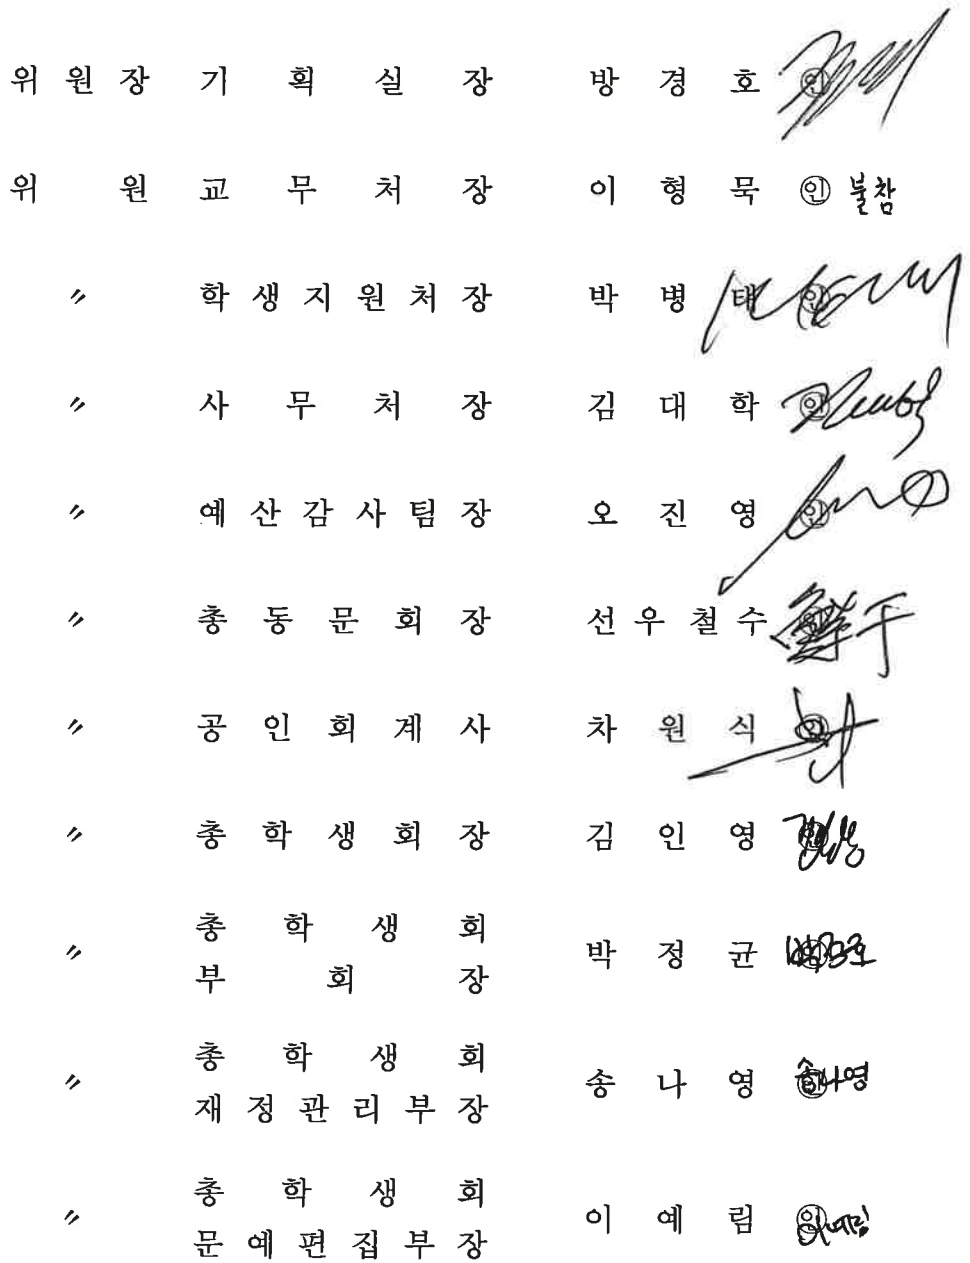 위 원 장 기 획 실 장 방 경 호 ㊞
위 원 교 무 처 장 이 형 묵 ㊞ 불참
〃 학 생 지 원 처 장 박 병 태 ㊞
〃 사 무 처 장 김 대 학 ㊞
〃 예 산 감 사 팀 장 오 진 영 ㊞
〃 총 동 문 회 장 선 우 철 수 ㊞ 鮮于
〃 공 인 회 계 사 차 원 식 ㊞
〃 총 학 생 회 장 김 인 영 ㊞
〃 총 학 생 회
부 회 장 박 정 균 ㊞
〃 총 학 생 회
재 정 관 리 부 장 송 나 영 ㊞ 송나영
〃 총 학 생 회
문 예 편 집 부 장 이 예 림 ㊞ 이예림